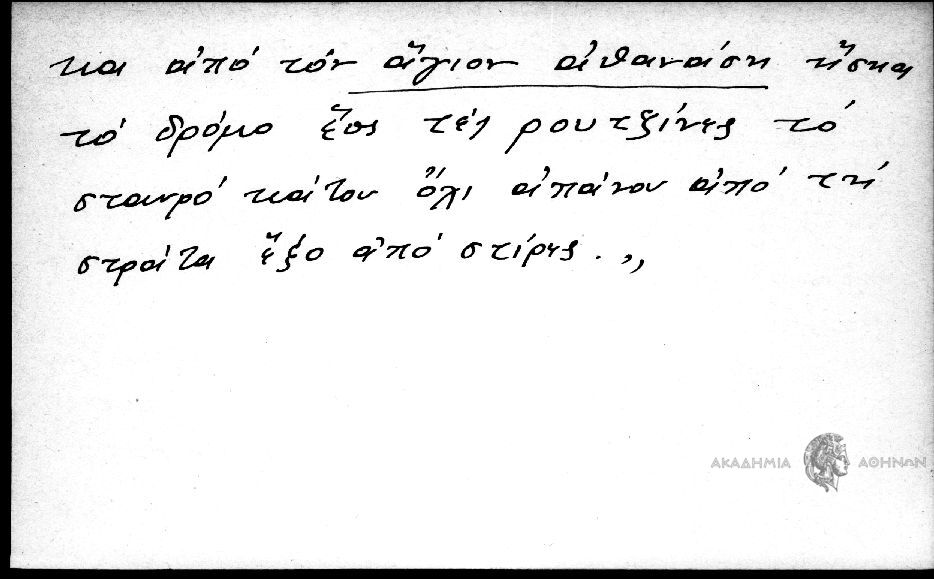 και ἀπό τόν ἅγιον ἀθανάση ἤσκα
τό δρόμο ἕος τές ρουτζίνες τό
σταυρό κάτου ὅλι ἀπάνου ἀπό τή
στράτα ἔξο ἀπό στίρες.,,
ΑΚΑΔΗΜΙΑ ΑΘΗΝΩΝ